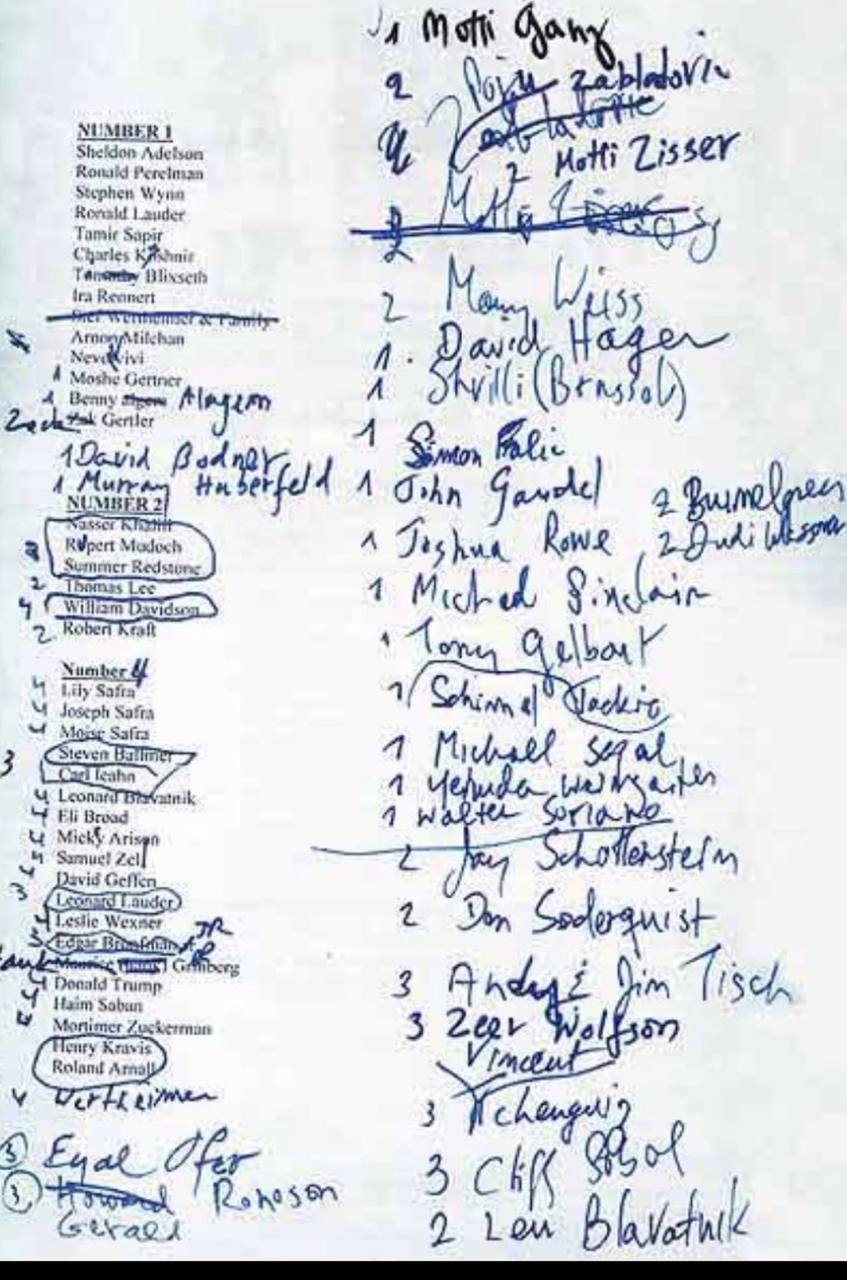 NUMBER 1
Sheldon Adelson
Ronald Perelman
Stephen Wynn
Ronald Lauder
Tamir Sapir
Charles Kushnir
Blixseth
Ira Rennert
Stef Wertheimer & Family
Arnon Milchan
Nevo Vivi
1 Moshe Gertner
1 Benny Alagem
Gertler
1 David Bodner
1 Murray Huberfeld
NUMBER 2
Nasser Khalili
Rupert Mudoch
Summer Redstone
2 Thomas Lee
4 William Davidson
2 Robert Kraft
Number 4
4 Lily Safra
4 Joseph Safra
4 Moise Safra
3 Steven Ballmer
Carl Icahn
4 Leonard Blavatnik
4 Eli Broad
4 Micky Arison
Samuel Zell
David Geffen
3 Leonard Lauder
4 Leslie Wexner
Edgar Bronfman JR
Grinberg
4 Donald Trump
4 Haim Saban
Mortimer Zuckerman
Henry Kravis
Roland Arnall
4 Wertheimer
3 Eyal Ofer
3 Howard Ronoson
Gerald
1 Motti Ganz
2 Poju Zabladovic
2 Motti Zisser
2 Weiss
1. David Hager
1 Shvilli (Brussol)
1 Simon Falic
1 John Gandel
2 Dudi
1 Joshua Rowe
1 Michael Sinclair
1 Tony Gelbart
1 Schimmel Jackie
1 Michael Segal
1 Yehuda Weingarten
1 Walter Soriano
2 Jay Schottenstein
2 Don Soderquist
3 Andy & Jim Tisch
3 Zeev Wolfson
Vincent
3 Tchenguiz
3 Cliff Sobol
2 Len Blavatnik